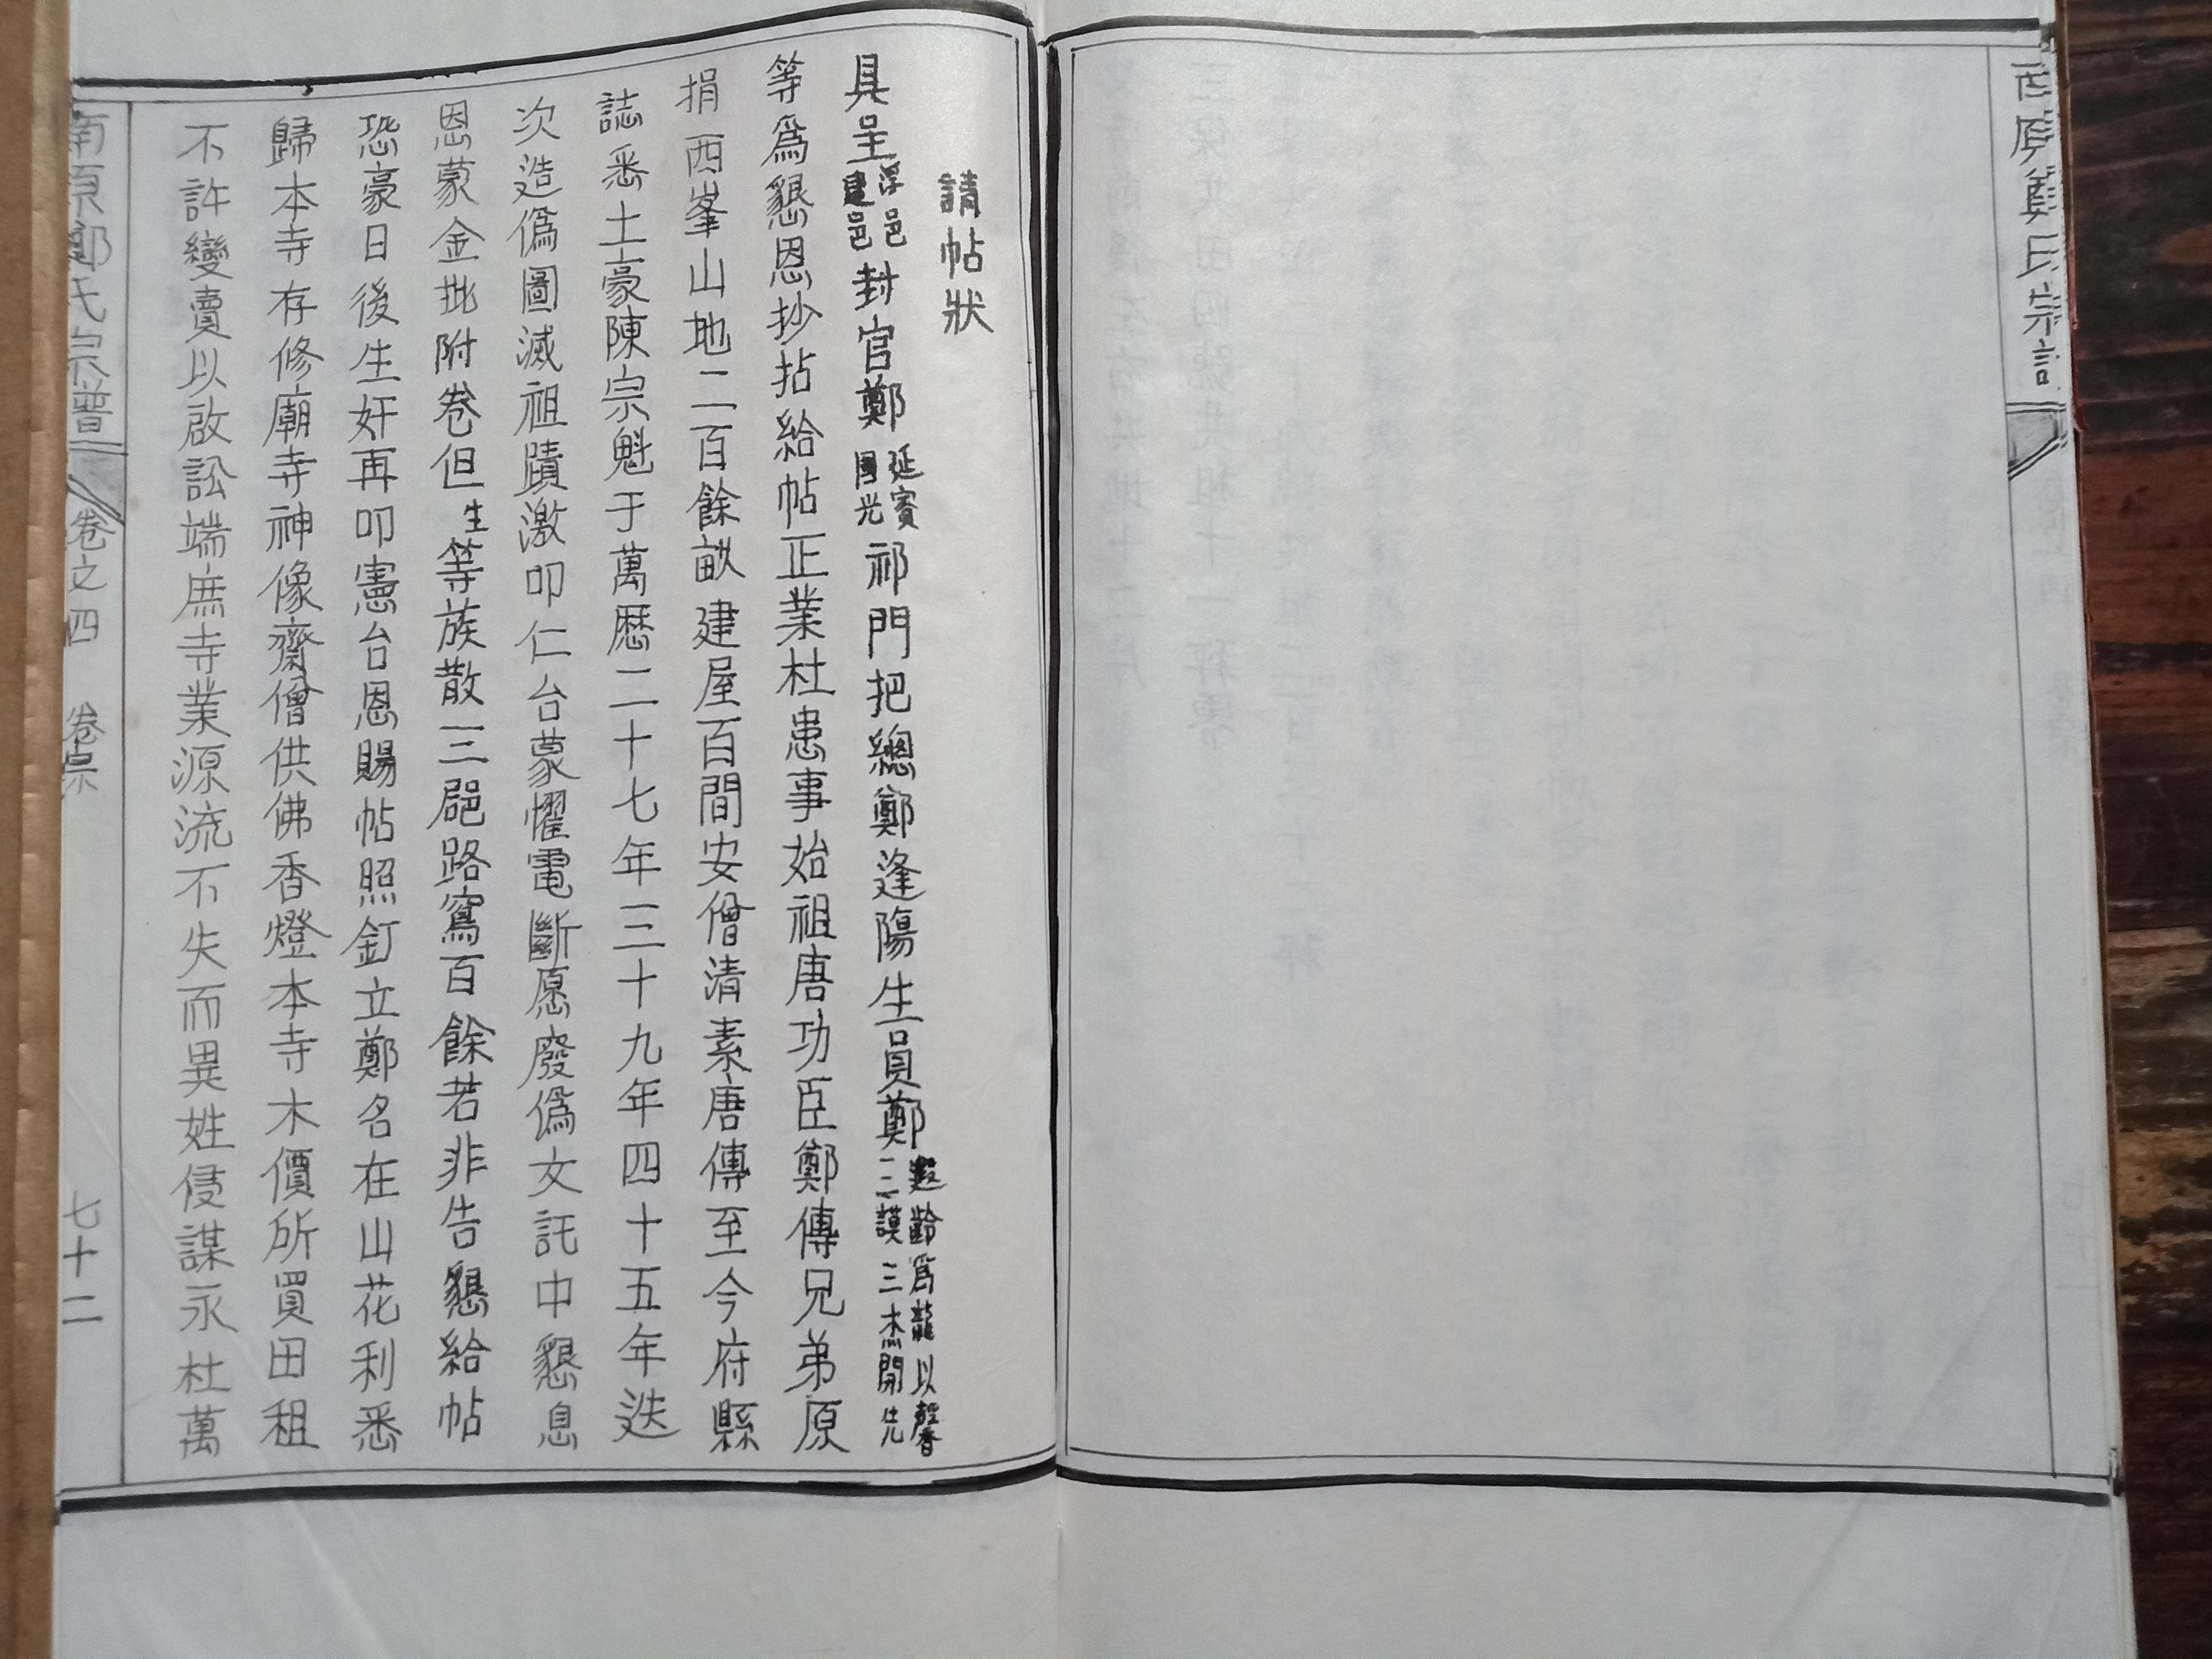 請帖狀
具呈浮邑建邑封官鄭延賓國光祁門把總鄭逢陽生員鄭遐齡爲龍以馨三謨三杰開先
等爲懇恩抄拈給帖正業杜患事始祖唐功臣鄭傳兄弟原
捐西峯山地二百餘畝建屋百間安僧清素唐傳至今府縣
誌悉土豪陳宗魁于萬歷二十七年三十九年四十五年迭
次造僞圖滅祖蹟激叩仁台蒙懼電斷愿廢僞文託中懇息
恩蒙金批附卷但生等族散三郒路窵百餘若非告懇給帖
恐豪日後生奸再叩憲台恩賜帖照釘立鄭名在山花利悉
歸本寺存修廟寺神像齋僧供佛香燈本寺木價所買田租
不許變賣以啟訟端庶寺業源流不失而異姓侵謀永杜萬
南原鄭氏宗譜 卷之四 卷宗 七十二